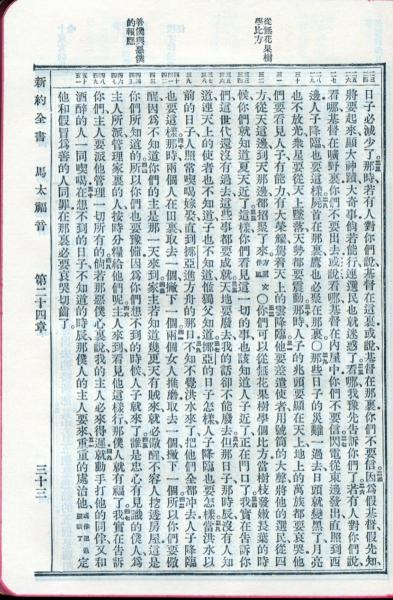 從無花果樹學比方
善僕與惡僕的報應
日子必減少了那時若有人對你們說基督在這裏或說基督在那裏你們不要信因爲假基督假先知
將要起來顯大神蹟大奇事倘若能行連選民也就迷惑了看哪我豫先告訴你們了若有人對你們說
看哪基督在曠野裏你們不要出去或說看哪基督在內屋中你們不要信閃電從東邊發出直照到西
邊人子降臨也要這樣屍首在那裏鷹也必聚在那裏○那些日子的災難一過去日頭就變黑了月亮
也不放光衆星要從天上墜落天勢都要震動那時人子的兆頭要顯在天上地上的萬族都要哀哭他
們要看見人子有能力有大榮耀駕着天上的雲降臨他要差遣使者用號筒的大聲將他的選民從四
方從天這邊到天那邊都招聚了來○你們可以從無花果樹學個比方當樹枝發嫩長葉的時
候你們就知道夏天近了這樣你們看見這一切的事也該知道人子近了正在門口了我實在告訴你
們這世代還沒有過去這些事都要成就天地要廢去我的話卻不能廢去但那日子那時辰沒有人知
道連天上的使者也不知道子也不知道惟獨父知道挪亞的日子怎樣人子降臨也要怎樣當洪水以
前的日子人照常喫喝嫁娶直到挪亞進方舟的那日不知不覺洪水來了把他們全都沖去人子降臨
也要這樣那時兩個人在田裏取去一個撇下一個兩個女人推磨取去一個撇下一個所以你們要儆
醒因爲不知道你們的主是那一天來到家主若知道幾更天有賊來就必儆醒不容人挖透房屋這是
你們所知道的所以你們也要豫備因爲你們想不到的時候人子就來了誰是忠心有見識的僕人爲
主人所派管理家裏的人按時分糧給他們呢主人來到看見他這樣行那僕人就有福了我實在告訴
你們主人要派他管理一切所有的倘若那惡僕心裏說我的主人必來得遲就動手打他的同伴又和
酒醉的人一同喫喝在想不到的日子不知道的時辰那僕人的主人要來重重的處治他定
他和假冒爲善的人同罪在那裏必要哀哭切齒了
新約全書 馬太福音 第二十四章 三十三